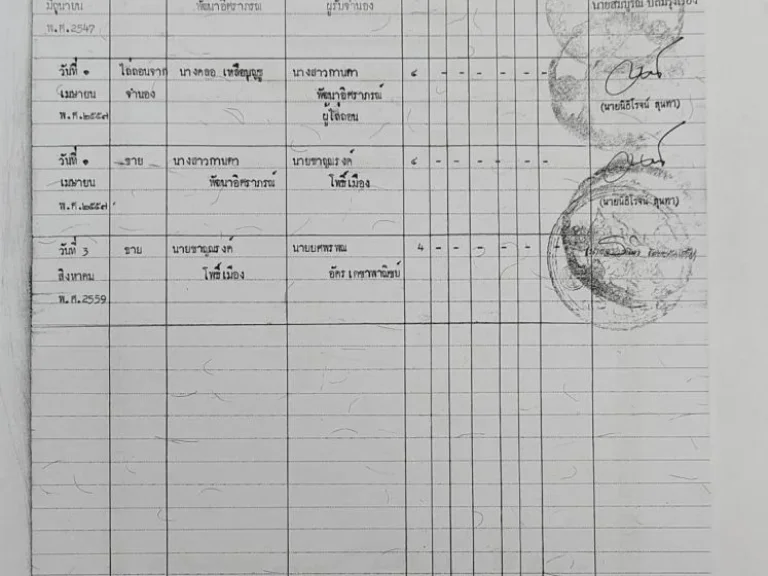 มิถุนายน พัฒนาอิศราภรณ์ ผู้รับจำนอง
พ.ศ.2547
วันที่ ๑ ไถ่ถอนจาก นางคลอ เหลือบุญชู นางสาวกานดา ๔ - - - - - -
เมษายน จำนอง พัฒนาอิศราภรณ์
พ.ศ.๒๕๕๗ ผู้ไถ่ถอน (นายนิธิโรจน์ สุนทา)
วันที่ ๑ ขาย นางสาวกานดา นายชาญณรงค์ ๔ - - - - - -
เมษายน พัฒนาอิศราภรณ์ โพธิ์เมือง
พ.ศ.๒๕๕๗ (นายนิธิโรจน์ สุนทา)
วันที่ 3 ขาย นายชาญณรงค์ นายยศพรพณ 4 - - - - - -
สิงหาคม โพธิ์เมือง อัครเดชาพาณิชย์
พ.ศ.2559